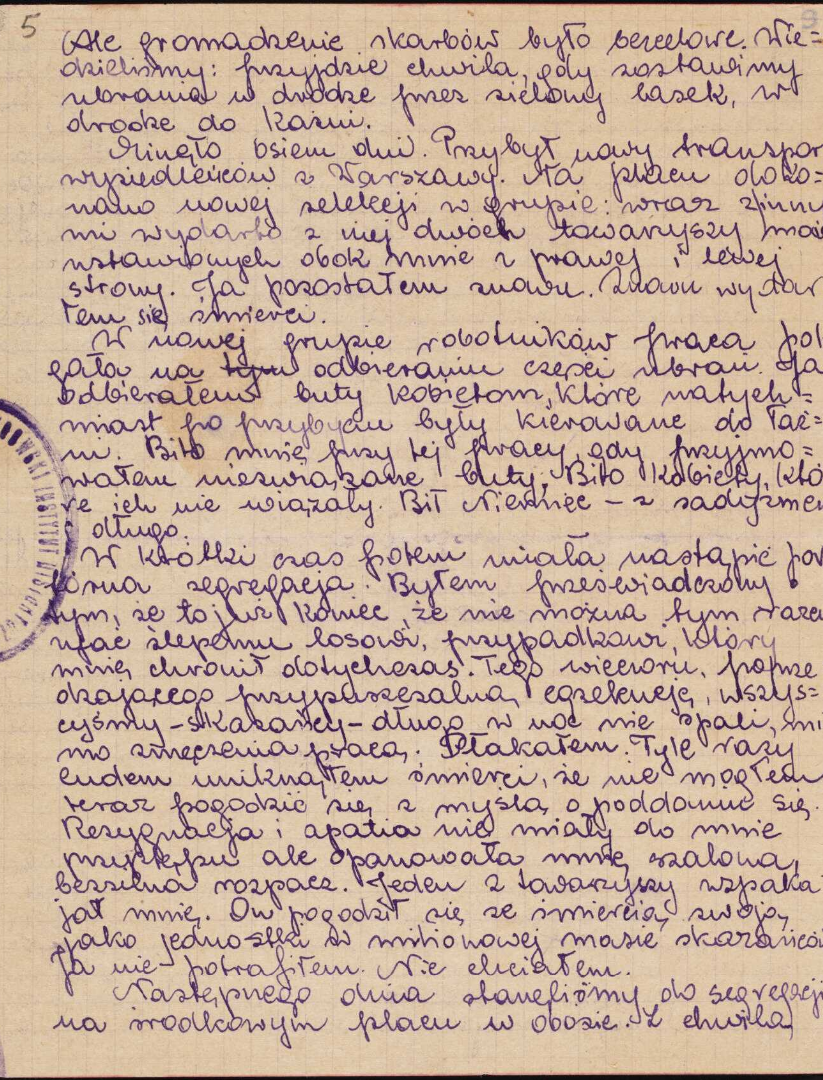 5
(Ale gromadzenie skarbów było bezcelowe. Wie=
dzieliśmy: przyjdzie chwila, gdy zostawimy
ubrania w drodze przez zielony lasek, w
drodze do kaźni.
Minęło osiem dni. Przybył nowy transpor
wysiedleńców z Warszawy. Na placu doko=
nano nowej selekcji w grupie: wraz z innu
mi wydarto z niej dwóch towarzyszy moic
ustawionych obok mnie z prawej i lewej
strony. Ja pozostałem znowu. Znowu wydar
łem się śmierci.
W nowej grupie robotników praca pol
gała na tym odbieraniu części ubrań. Ja
odbierałem buty kobietom, które natych=
miast po przybyciu były kierowane do łaź=
ni. Bito mnie przy tej pracy, gdy przyjmo=
wałem niezwiązane buty. Bito kobiety, któ
re ich nie wiązały. Bił Niemiec – z sadyzmem
długo.
W krótki czas potem miała nastąpić pow
tórna segregacja. Byłem przeświadczony o
tym, że to już koniec, że nie można tym raze
ufać ślepemu losowi, przypadkowi, który
mnie chronił dotychczas. Tego wieczoru, poprze
dzającego przypuszczalną egzekucję, wszys=
cyśmy – skazańcy – długo w noc nie spali, mi
mo zmęczenia pracą. Płakałem. Tyle razy
cudem uniknąłem śmierci, że nie mogłem
teraz pogodzić się z myślą o poddaniu się.
Rezygnacja i apatia nie miały do mnie
przystępu ale opanowała mnie szalona,
bezsilna rozpacz. Jeden z towarzyszy uspaka
jał mnie. On pogodził się ze śmiercią swoją,
jako jednostki w milionowej masie skazańców
Ja nie potrafiłem. Nie chciałem.
Następnego dnia stanęliśmy do segregacji
na środkowym placu w obozie. Z chwilą
INSTYTUT HISTORYCZ